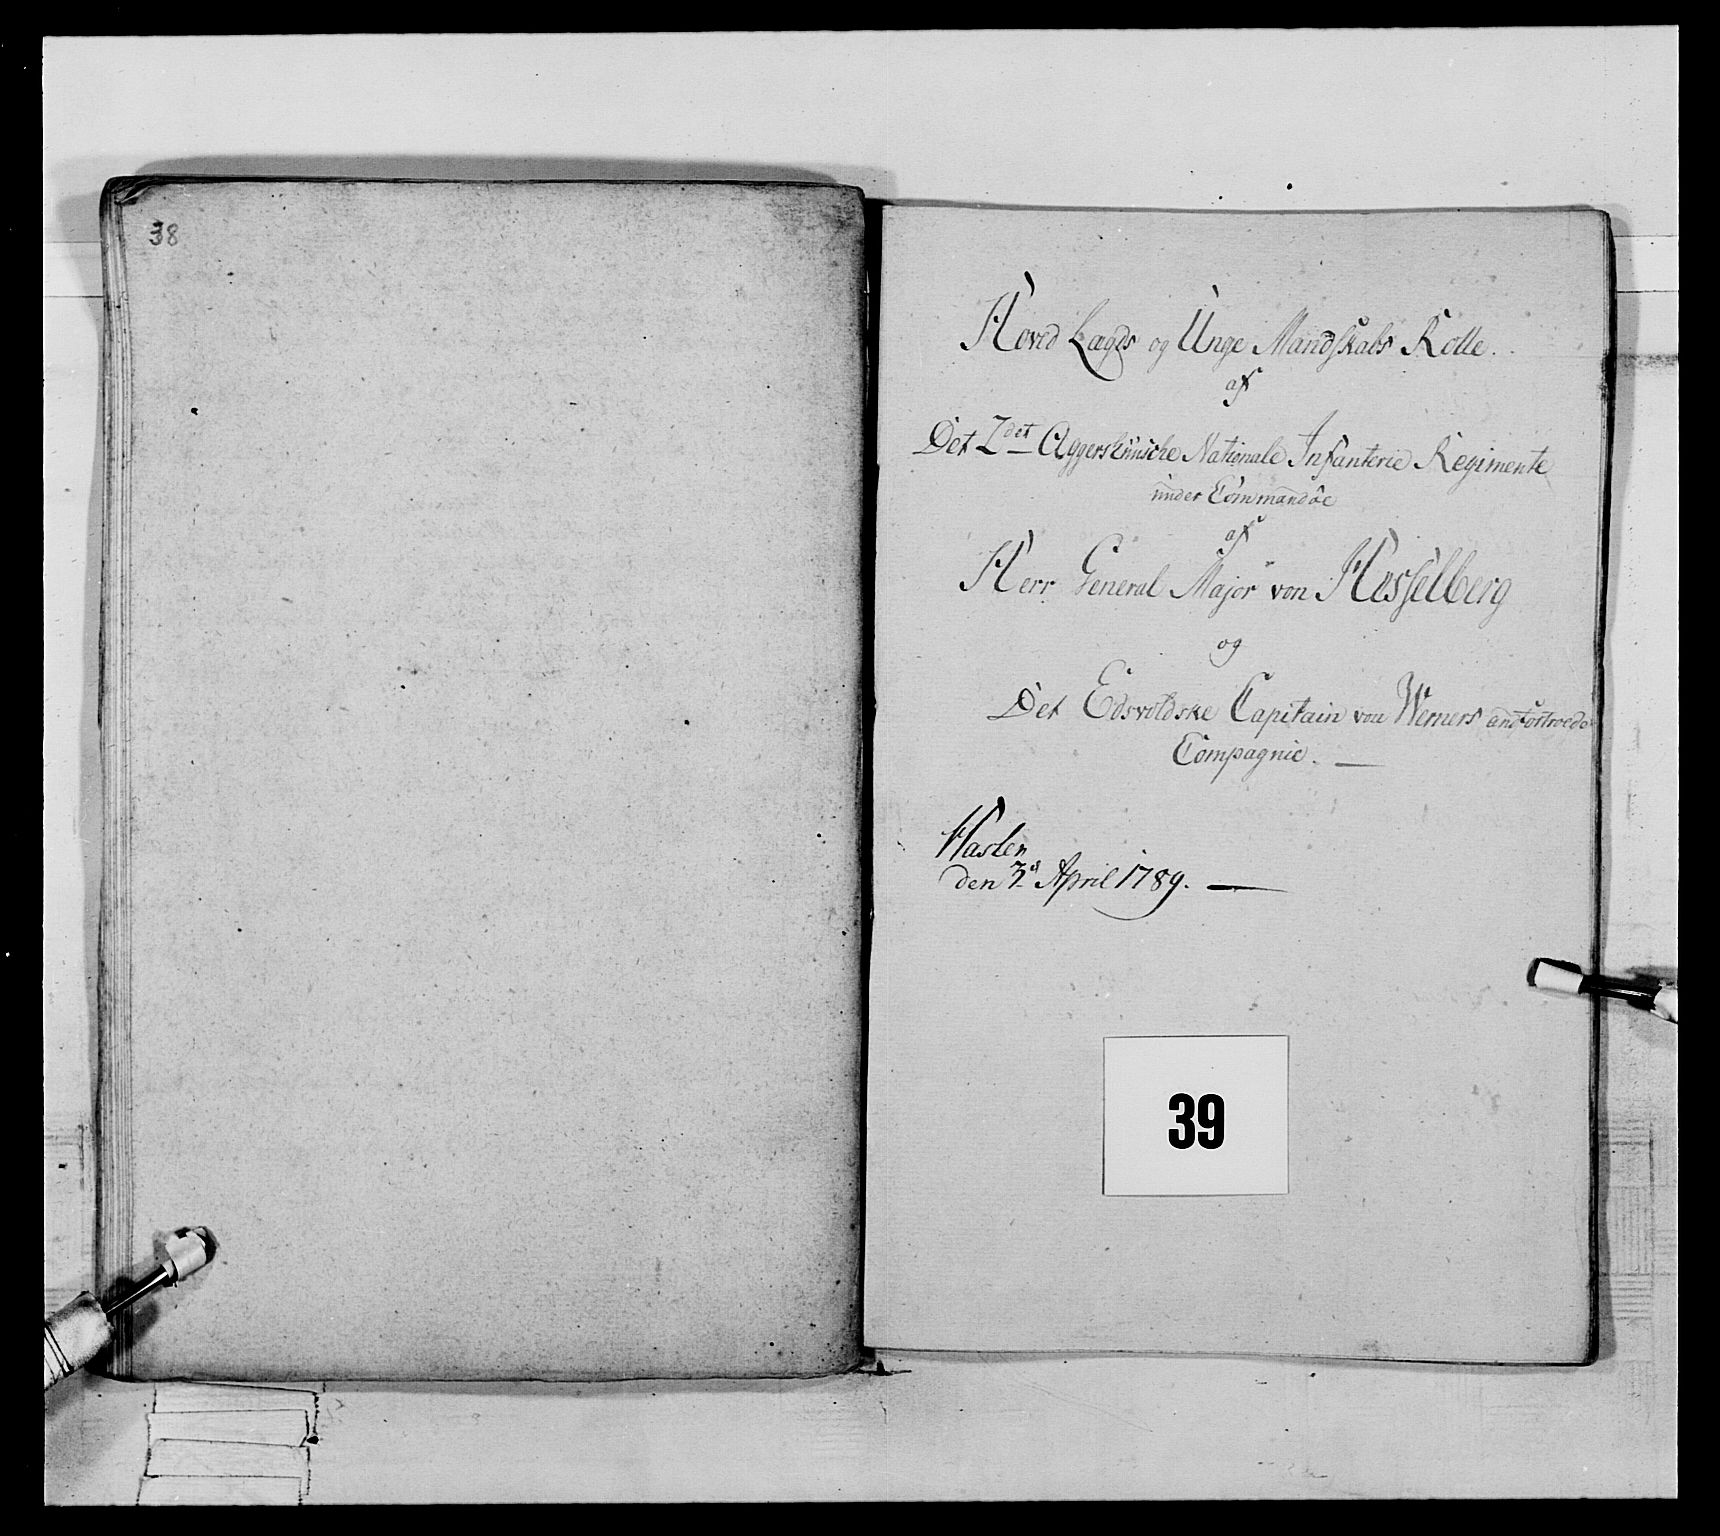 38
Hoved Lægds og Unge Mandskabs Rolle.
af
Det 2det Aggershuusche Nationale Infanterie Regimente
under Commandoe
af
Herr General Major von Hesselberg
og
Det Edsvoldske Capitain von Werners anfortroede
Compagnie.
Haslen
den 3d April 1789.
39